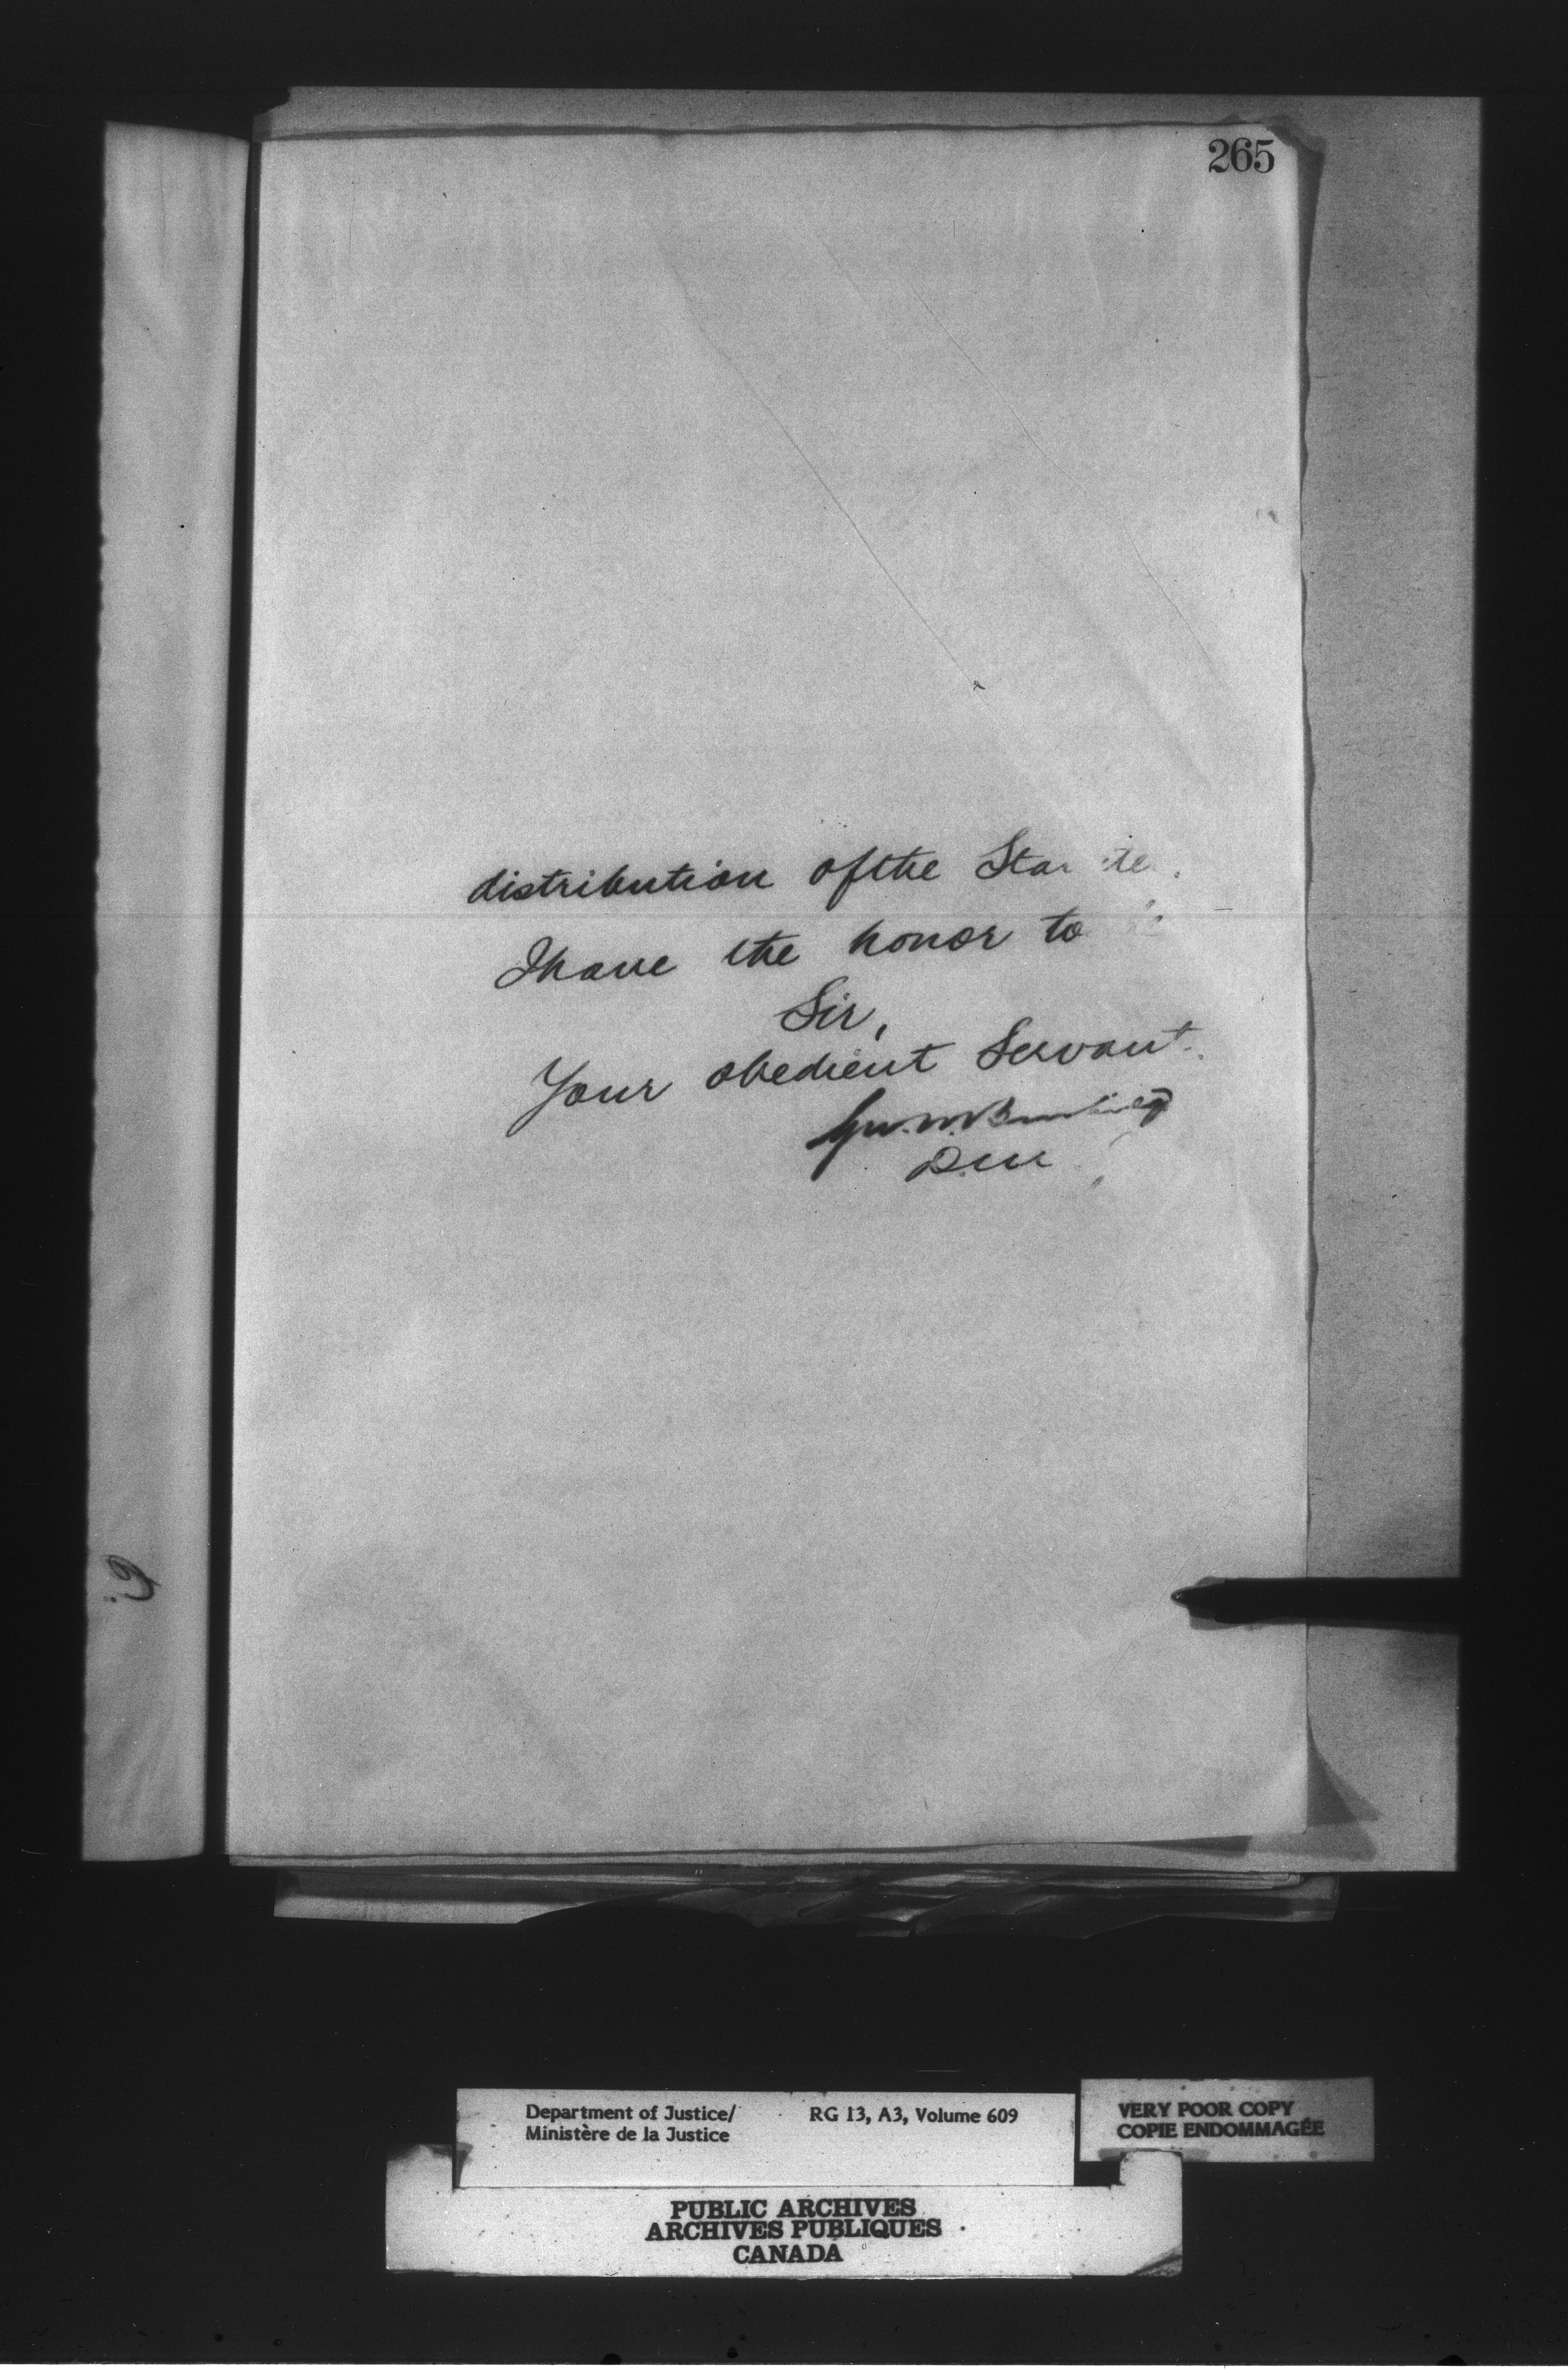 265
distribution of the
I have the honor to
Sir,
Your obedient Servant.
Department of Justice/
Ministère de la Justice
RG 13, A3, Volume 609
VERY POOR COPY
COPIE ENDOMMAGÉE
PUBLIC ARCHIVES
ARCHIVES PUBLIQUES
CANADA